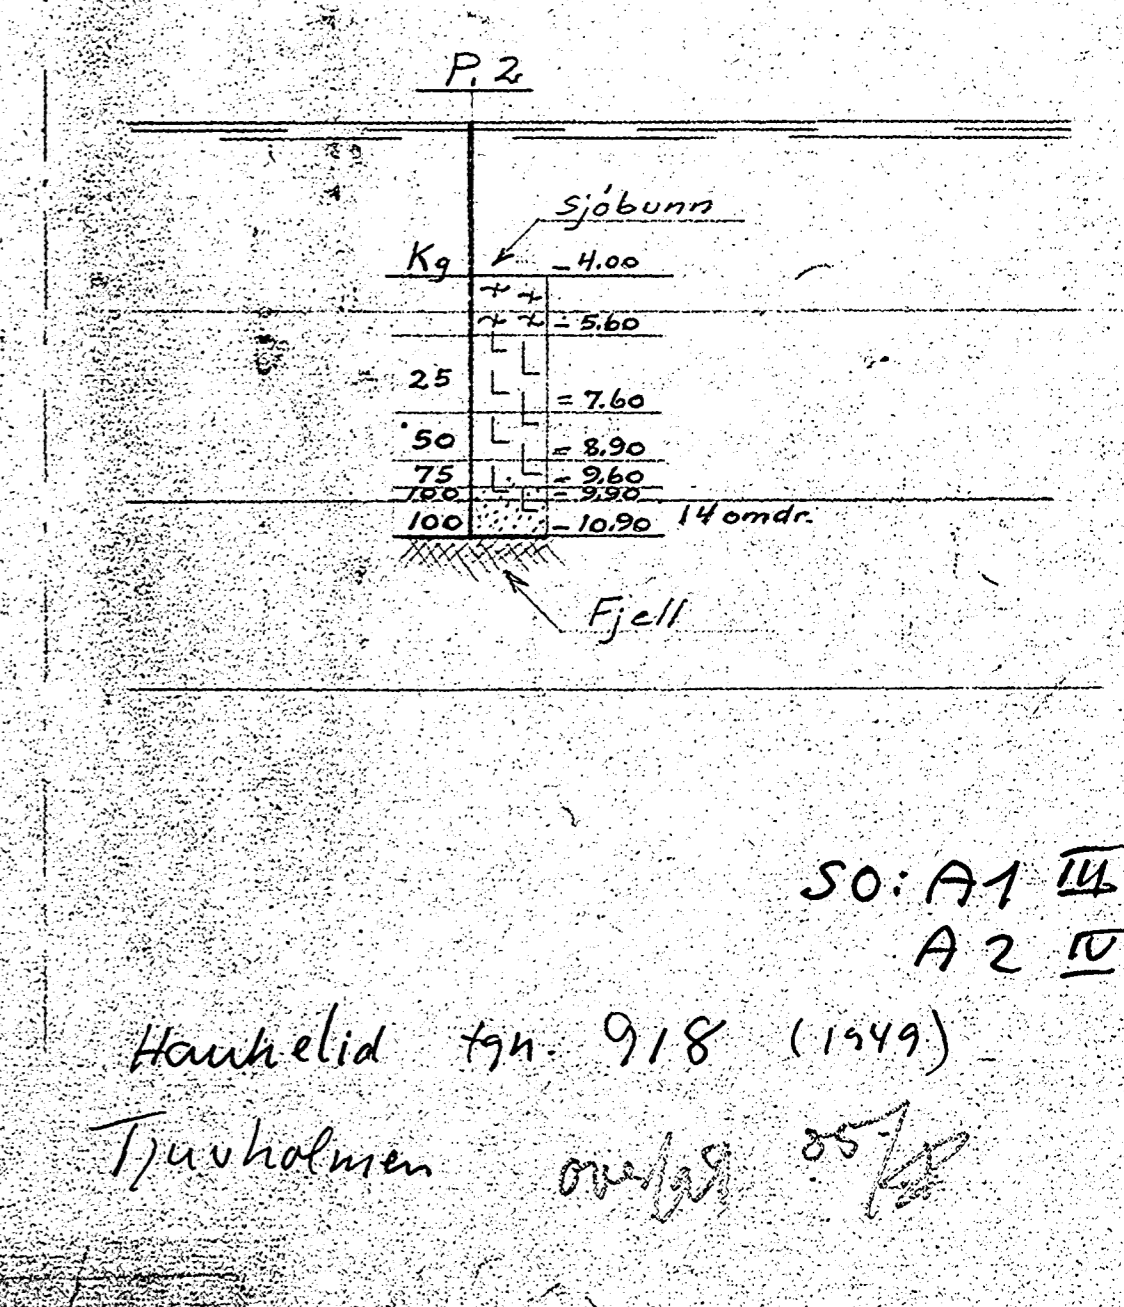 P. 2
Sjóbunn
Kg - 4.00
- 5.60
25 = 7.60
50 = 8.90
75 - 9.60
100 - 9.90
100 - 10.90 14 omdr.
Fjell
SO: A1 III
A2 IV
Haukelid tgn. 918 (1949)
Tjuvholmen